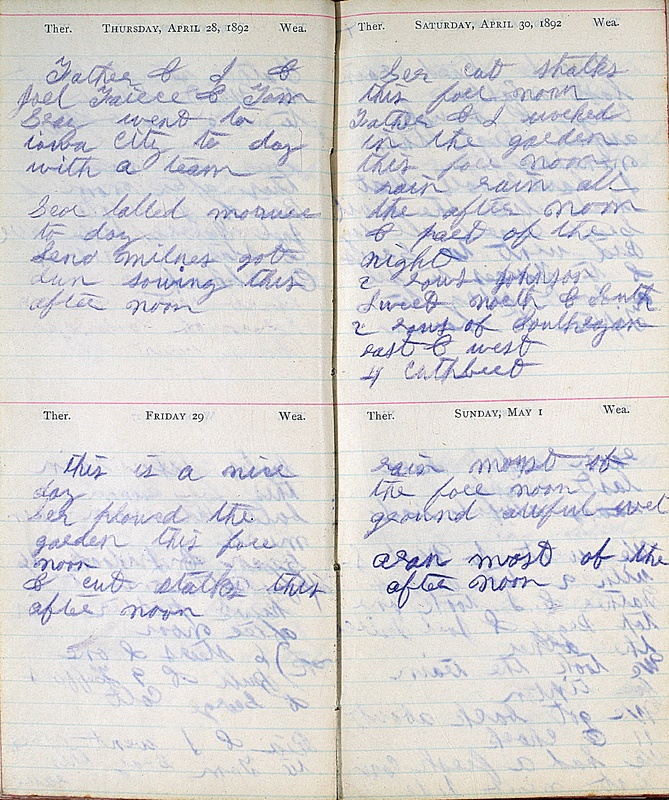 Ther. THURSDAY, APRIL 28, 1892 Wea.
Father & I &
Joel & Tom
went to
iowa City to day
with a team
to day
Send milnes got
dun sowing this
after noon
Ther. FRIDAY 29 Wea.
this is a nice
day
Ler plowed the
garden this fore
noon
& cut stalks this
after noon
Ther. SATURDAY, APRIL 30, 1892 Wea.
Ler cut stalks
this fore noon
Father & I worked
in the garden
this fore noon
rain rain all
the after noon
& part of the
night
2 rows johnson
Sweet north & South
2 rows of Souhegan
east & west
4 Cuthbert
Ther. SUNDAY, MAY 1 Wea.
rain moust of
the fore noon
ground auful wet
most of the
after noon